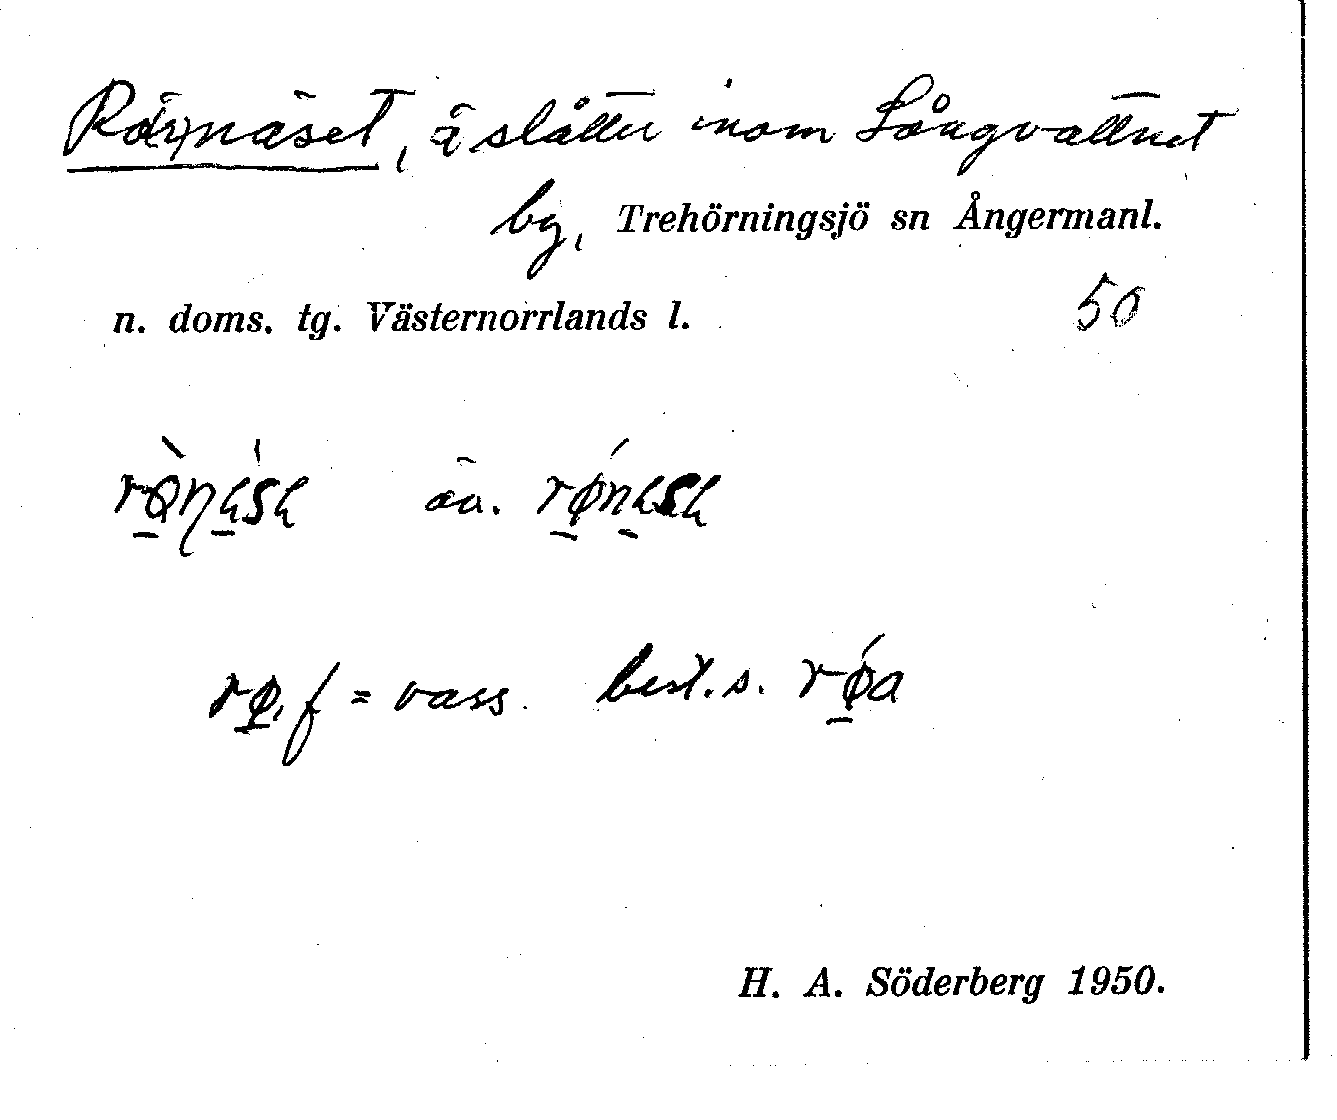 Rörnäset, ä slåtter inom Långvattnet
by, Trehörningsjö sn Ångermanl.
n. doms. tg. Västernorrlands l. 50
äv.
rø, f = vass. best. s. rǿa
H. A. Söderberg 1950.